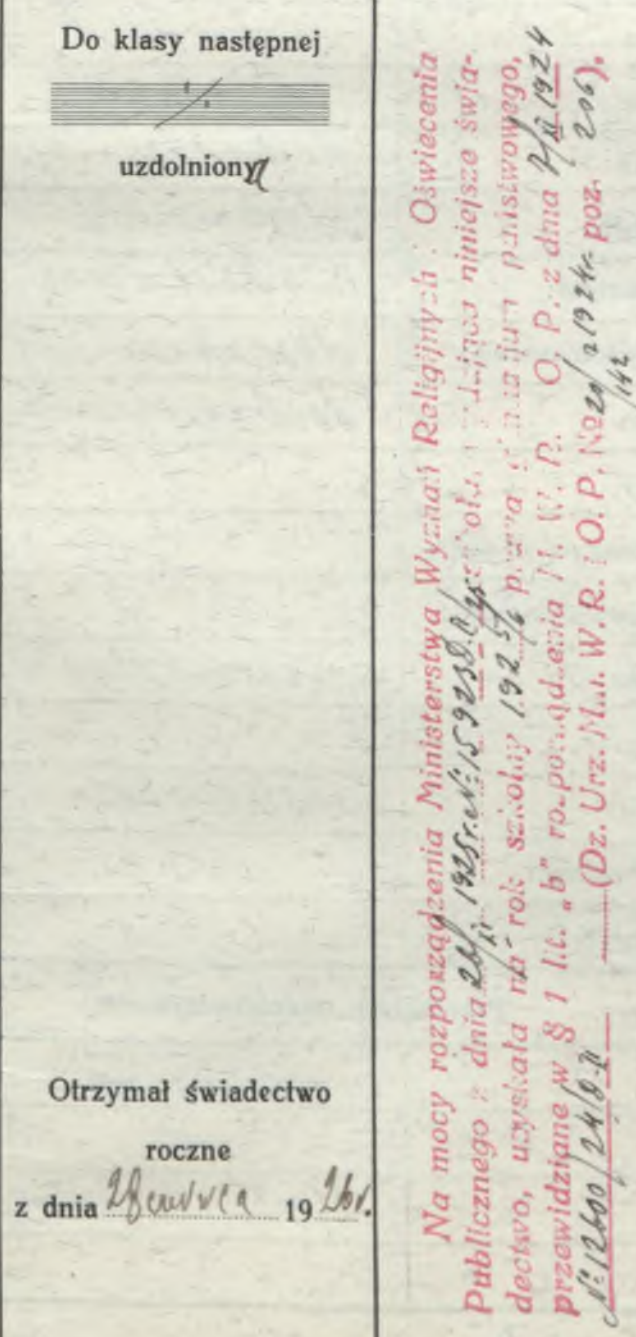 Do klasy następnej
uzdolniony
Otrzymał świadectwo
roczne
z dnia 28 czerwca 1926 r.
Na mocy rozporządzenia Ministerstwa Wyznań Religijnych i Oświecenia
Publicznego z dnia 1925 r. № szkoła wydająca niniejsze świa-
dectwo, uzyskała na rok szkolny 1925/6 prawa gimnazjum państwowego,
przewidziane w § 1 lit. „b” rozporządzenia M. W. R. i O. P. z dnia XII 1924
№ 12600/24 (Dz. Urz. Min. W. R. i O. P. № 20/142 z 1924 r. poz. 206).